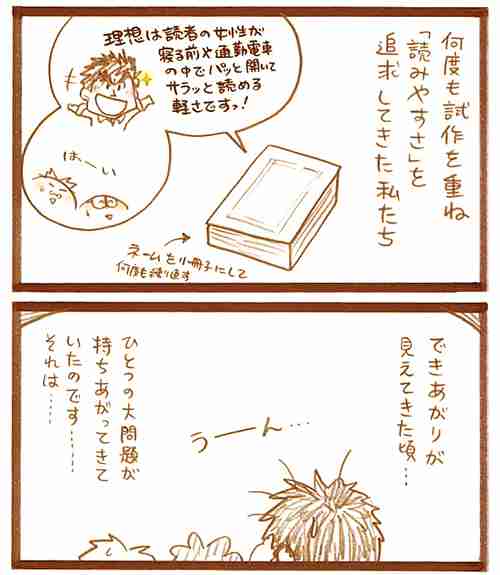 何度も試作を重ね
「読みやすさ」を
追求してきた私たち
理想は読者の女性が
寝る前や通勤電車
の中でパッと開いて
サラッと読める
軽さですっ!
はーい
ネームを小冊子にして
何度も練り直す
できあがりが
見えてきた頃…
うーーん…
ひとつの大問題が
持ちあがってきて
いたのです……
それは……